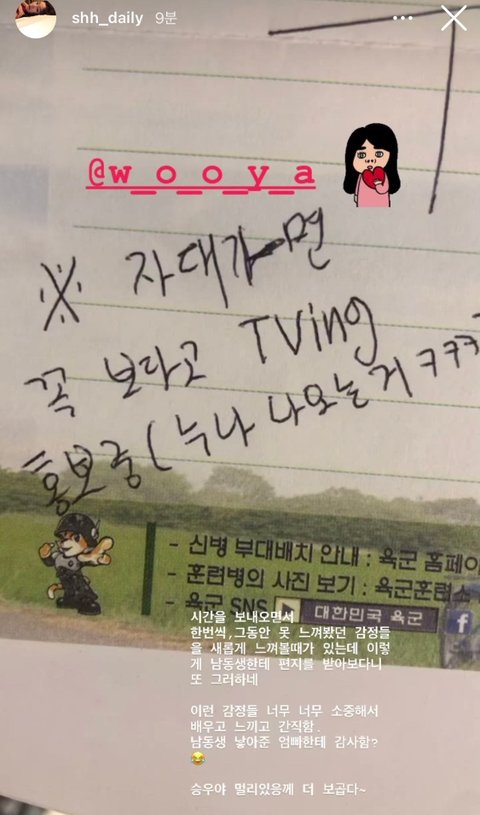 shh_daily 9분
@w_o_o_y_a
※ 자대가면
꼭 보라고 TVing
홍보중(누나 나오는거 ㅋㅋㅋ
- 신병 부대배치 안내 : 육군 홈페이
- 훈련병의 사진 보기 : 육군훈련소
- 육군 SNS ▶ 대한민국 육군 f
시간을 보내오면서
한번씩,그동안 못 느껴봤던 감정들
을 새롭게 느껴볼때가 있는데 이렇
게 남동생한테 편지를 받아보다니
또 그러하네
이런 감정들 너무 너무 소중해서
배우고 느끼고 간직함.
남동생 낳아준 엄빠한테 감사함?
😂
승우야 멀리있응께 더 보곱다~